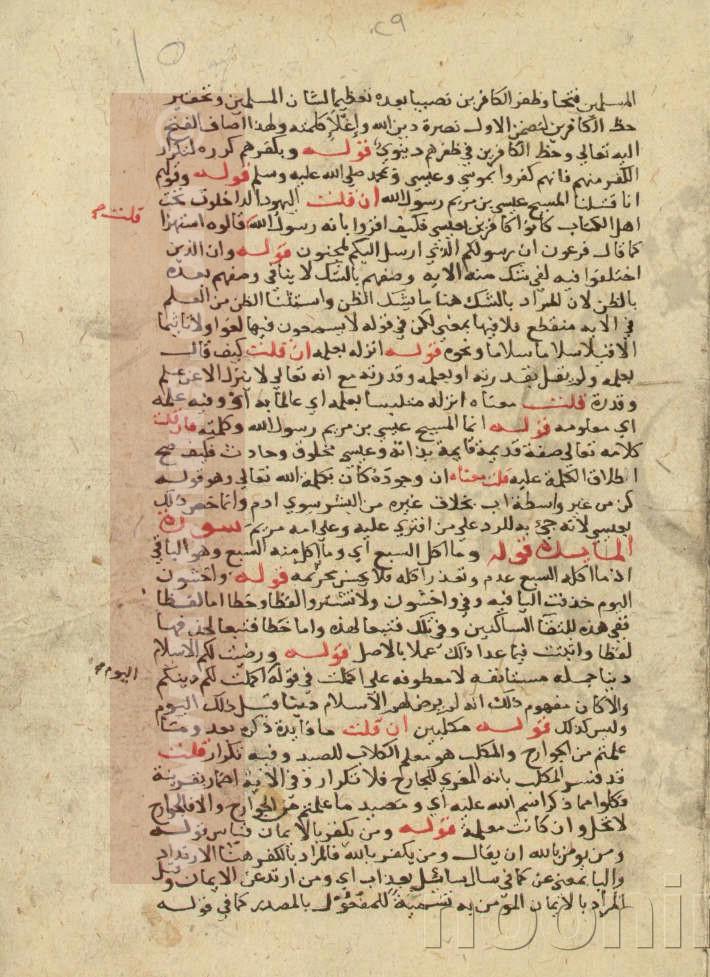 ٢٩
15
المسلمين فتحا وظفر الكافرين نصيبا بعده تعظيما لشان المسلمين وتحقير
حظ الكافرين لتضمن الاول نصرة دين الله واعلا كلمته ولهذا اضاف الفتح
اليه تعالي وحظ الكافرين في ظفرهم دنيوي قوله وبكفرهم كرره لتكرار
الكفر منهم فانهم كفروا بموسي وعيسي ومحمد صلي الله عليه وسلم قوله وقولهم
انا قتلنا المسيح عيسي بن مريم رسول الله ان قلت اليهود الداخلون تحت
قلت
اهل الكتاب كانوا كافرين بعيسي فكيف اقروا بانه رسول الله قالوه استهزا
كما قال فرعون ان رسولكم الذي ارسل اليكم لمجنون قوله وان الذين
اختلفوا فيه لفي شك منه الاية وصفهم بالشك لا ينافي وصفهم بعده
بالظن لان المراد بالشك هنا ما يشمل الظن واستثنا الظن من العلم
في الاية منقطع فالا فيها بمعني لكن في قوله لا يسمعون فيها لغوا ولا تاثيما
الا قيلا سلاما سلاما ونحوه قوله انزله بعلمه ان قلت كيف قال
بعلمه ولم يقل بقدرته او بعلمه وقدرته مع انه تعالي لا ينزل الا عن علم
وقدرة قلت معناه انزله متلبسا بعلمه اي عالما به او وفيه علمه
اي معلومه قوله انما المسيح عيسي بن مريم رسول الله وكلمته فان قلت
كلامه تعالي صفة قديمة قايمة بذاته وعيسي مخلوق وحادث فكيف صح
اطلاق الكلمة عليه قلت معناه ان وجوده كان بكلمة الله تعالي وهو قوله
كن من غير واسطة اب بخلاف غيره من البشر سوي ادم وانما خص ذلك
بعيسي لانه جيء به للرد علي من افتري عليه وعلي امه مريم سورة
المايدة قوله وما اكل السبع اي وما اكل منه السبع وهو الباقي
اذ ما اكله السبع عدم وتعذر اكله فلا يحسن تحريمه قوله واخشون
اليوم حذفت اليا فيه وفي واخشون ولا تشتروا لفظا وخطا اما لفظا
ففي هذه لالتقا الساكنين وفي تلك فتبعا لهذه واما خطا فتبعا لحذفها
لفظا واثبتت فيما عدا ذلك عملا بالاصل قوله ورضيت لكم الاسلام
اليوم
دينا جملة مستانفة لا معطوفة علي اكملت في قوله اكملت لكم دينكم
والا كان مفهوم ذلك انه لم يرض لهم الاسلام دينا قبل ذلك اليوم
وليس كذلك قوله مكلبين ان قلت ما فايدة ذكره بعد وما
علمتم من الجوارح والمكلب هو معلم الكلاب للصيد وفيه تكرار قلت
قد فسر المكلب بانه المغري للجارح فلا تكرار وفي الاية اضمار بقرينة
فكلوا مما ذكر اسم الله عليه اي ومصيد ما علمتم من الجوارح والا فالجوارح
لا تحل وان كانت معلمة قوله ومن يكفر بالايمان قياس قوله
ومن يومن بالله ان يقال ومن يكفر بالله فالمراد بالكفر هنا الارتداد
والبا بمعني عن كما في سال سائل بعذاب اي ومن ارتد عن الايمان وقيل
المراد بالايمان المؤمن به تسمية للمفعول بالمصدر كما في قوله
noonin